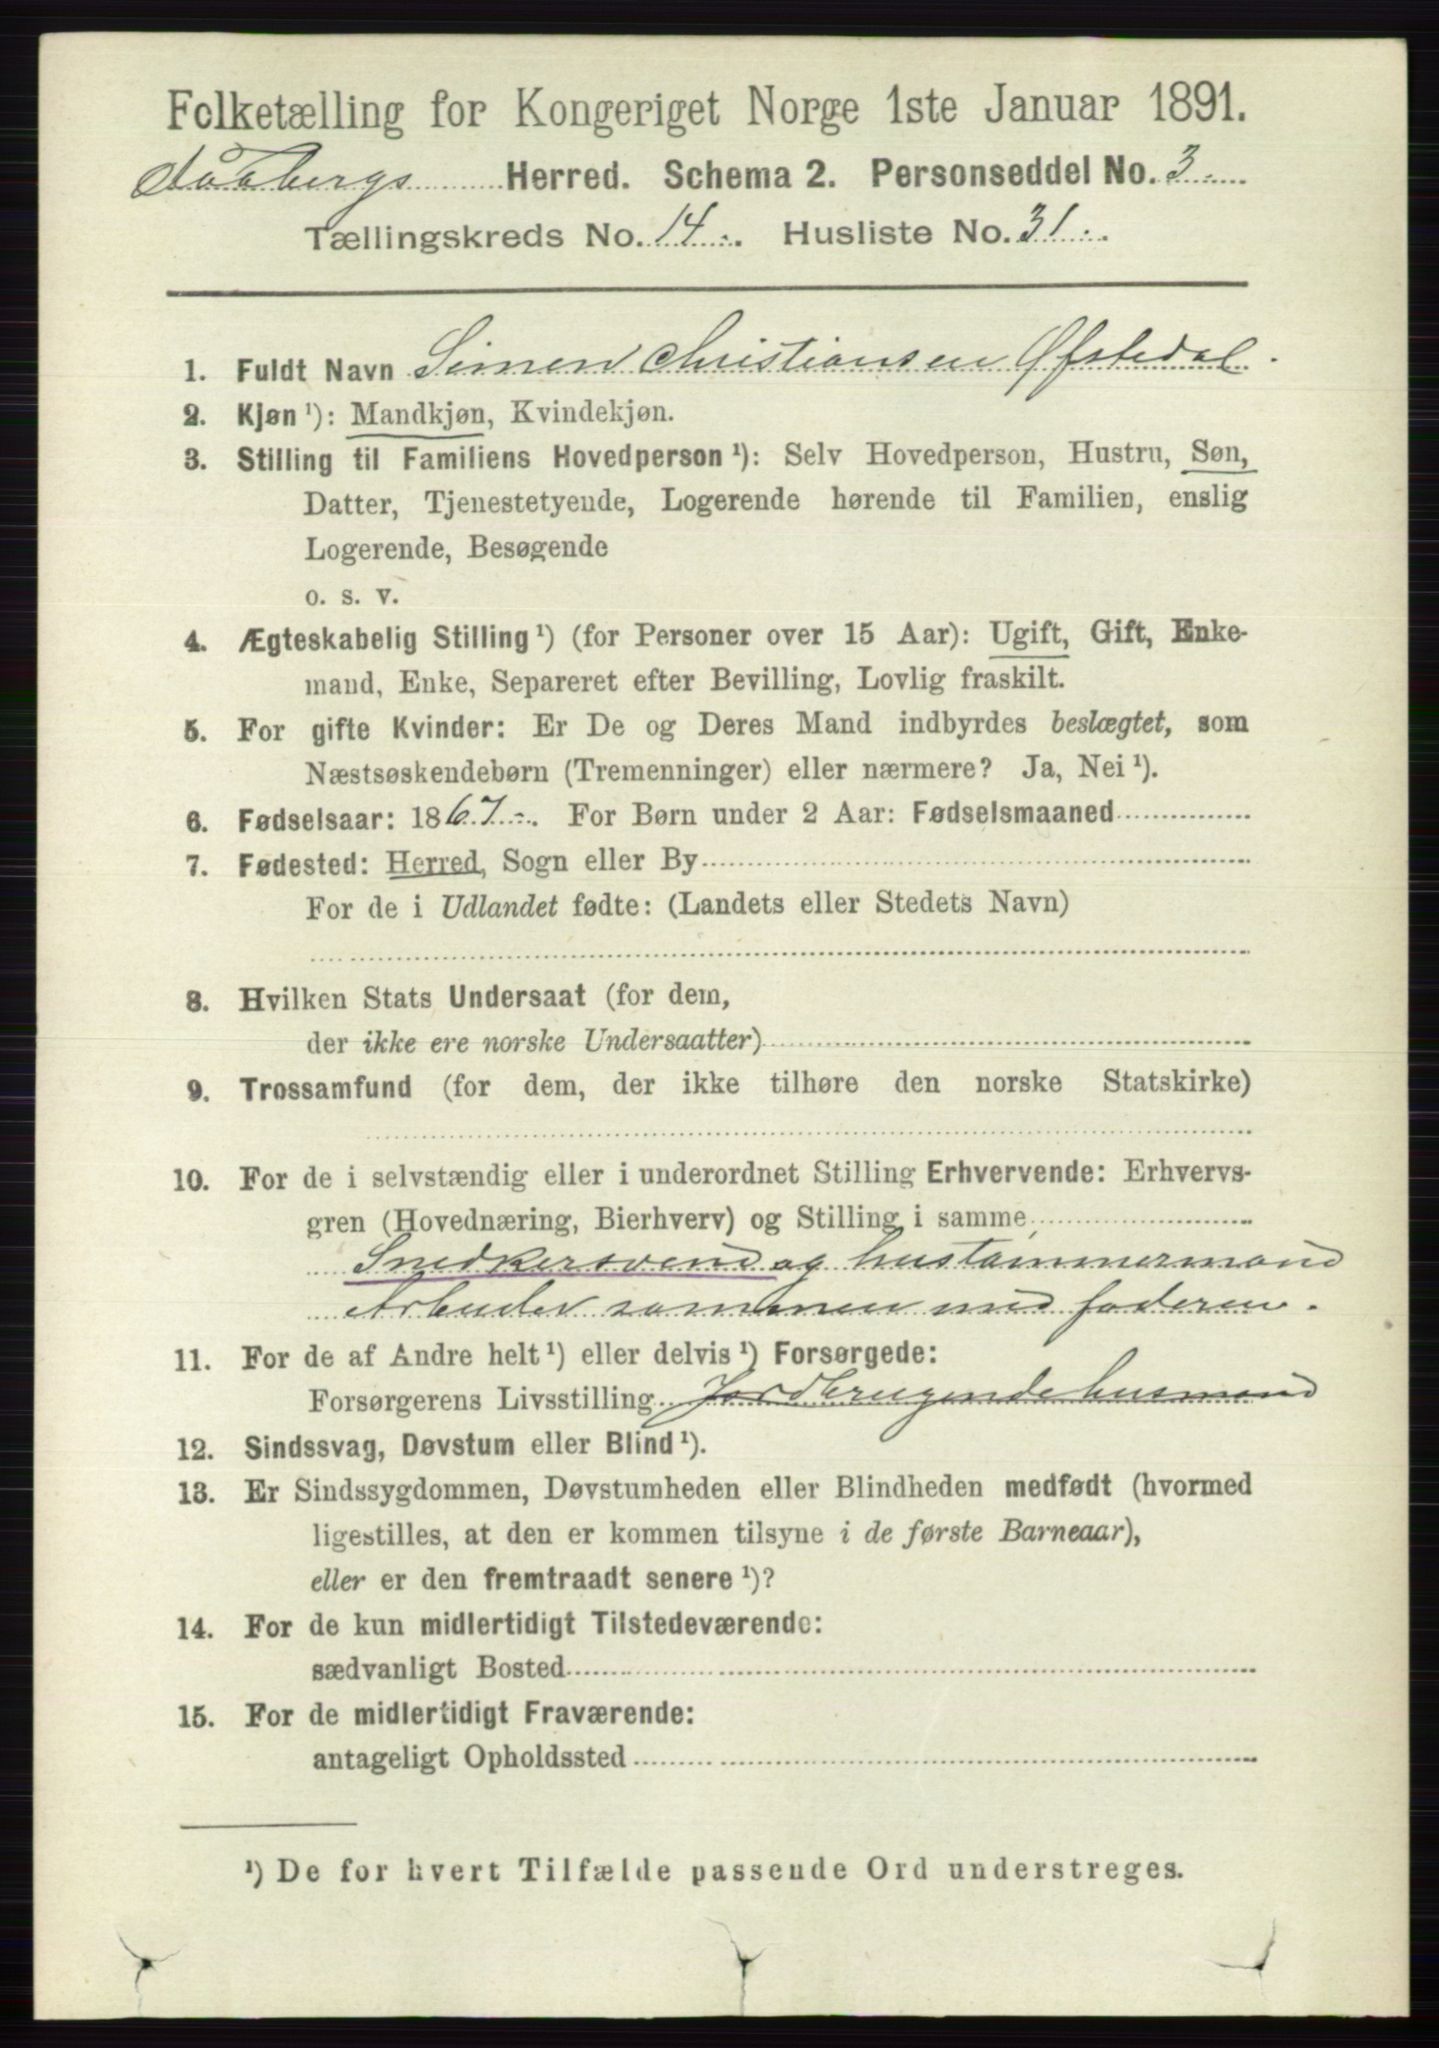 Folketælling for Kongeriget Norge 1ste Januar 1891.
Faabergs Herred. Schema 2. Personseddel No. 3
Tællingskreds No. 14. Husliste No. 31.
1. Fuldt Navn Simen Christiansen Øfstedal.
2. Kjøn ¹): Mandkjøn, Kvindekjøn.
3. Stilling til Familiens Hovedperson ¹): Selv Hovedperson, Hustru, Søn,
Datter, Tjenestetyende, Logerende hørende til Familien, enslig
Logerende, Besøgende
o. s. v.
4. Ægteskabelig Stilling ¹) (for Personer over 15 Aar): Ugift, Gift, Enke-
mand, Enke, Separeret efter Bevilling, Lovlig fraskilt.
5. For gifte Kvinder: Er De og Deres Mand indbyrdes beslægtet, som
Næstsøskendebørn (Tremenninger) eller nærmere? Ja, Nei ¹).
6. Fødselsaar: 1867. For Børn under 2 Aar: Fødselsmaaned
7. Fødested: Herred, Sogn eller By
For de i Udlandet fødte: (Landets eller Stedets Navn)
8. Hvilken Stats Undersaat (for dem,
der ikke ere norske Undersaatter)
9. Trossamfund (for dem, der ikke tilhøre den norske Statskirke)
10. For de i selvstændig eller i underordnet Stilling Erhvervende: Erhvervs-
gren (Hovednæring, Bierhverv) og Stilling i samme
Snedkersvend og hustømmermand
Arbeider sammen med faderen.
11. For de af Andre helt ¹) eller delvis ¹) Forsørgede:
Forsørgerens Livsstilling Jordbrugende husmand
12. Sindssvag, Døvstum eller Blind ¹).
13. Er Sindssygdommen, Døvstumheden eller Blindheden medfødt (hvormed
ligestilles, at den er kommen tilsyne i de første Barneaar),
eller er den fremtraadt senere ¹)?
14. For de kun midlertidigt Tilstedeværende:
sædvanligt Bosted
15. For de midlertidigt Fraværende:
antageligt Opholdssted
¹) De for hvert Tilfælde passende Ord understreges.